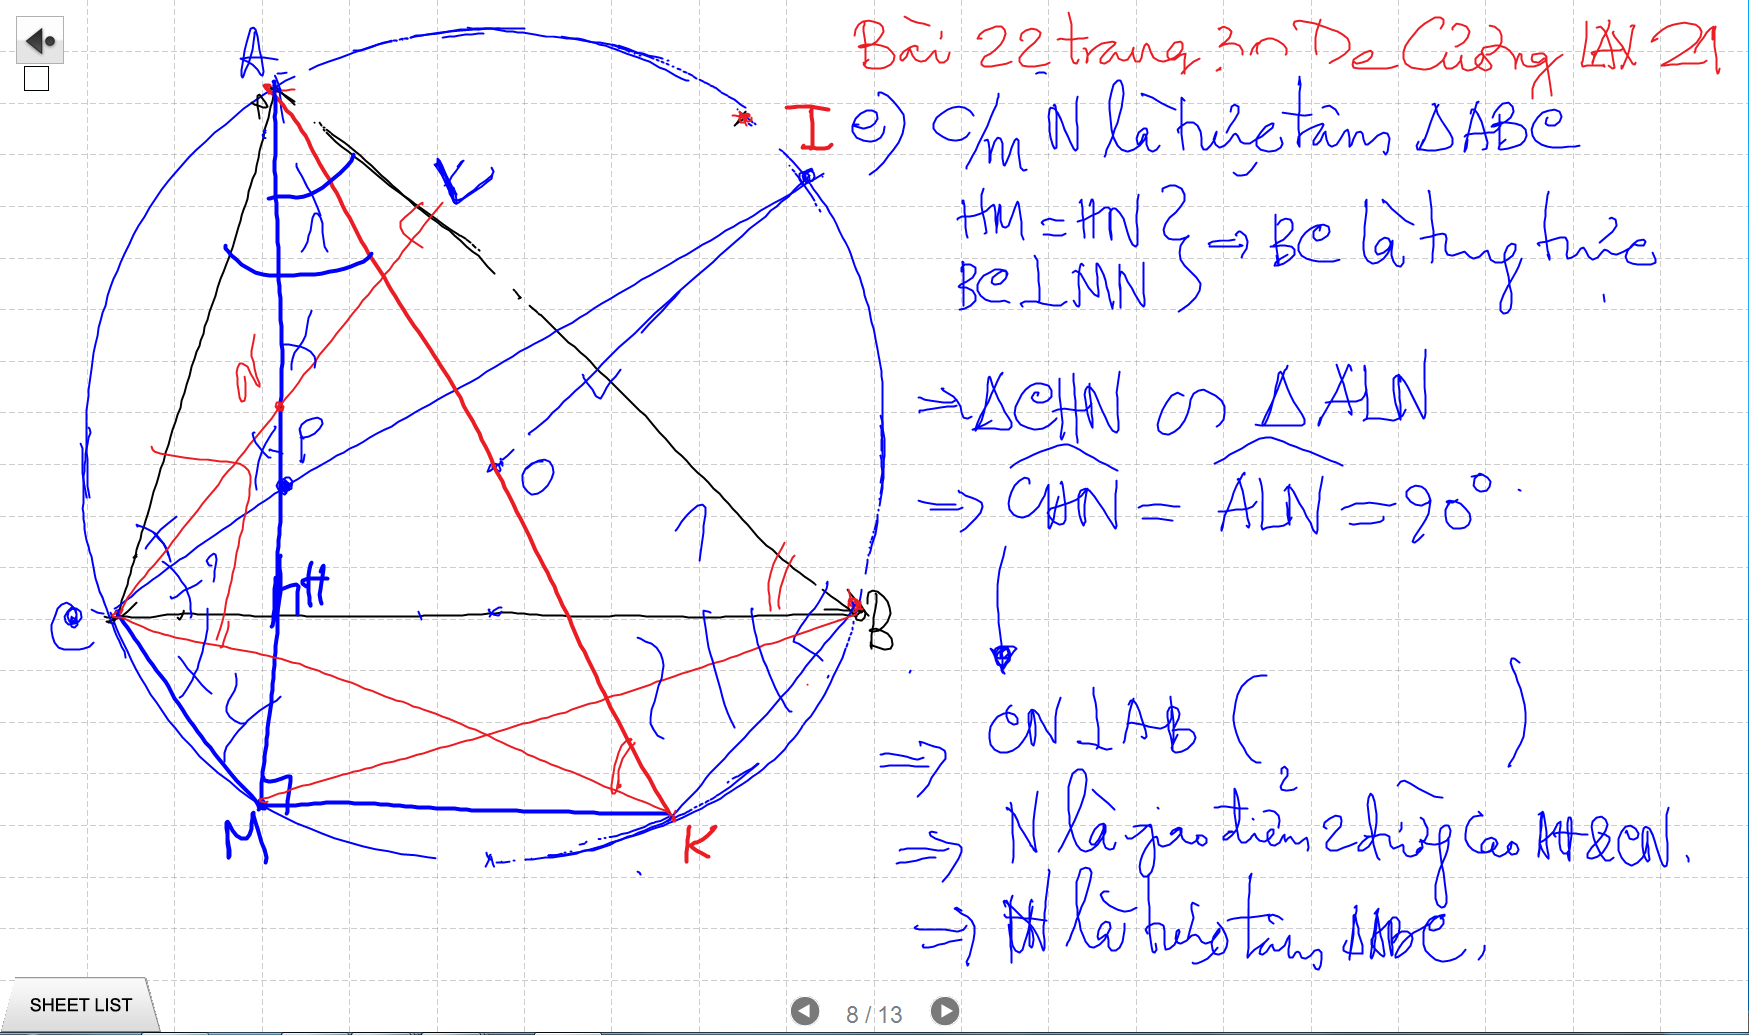 Bài 22 trang 30 Đề Cương LAX 21
e) C/m N là trực tâm ΔABC
HM = HN
BC ⊥ MN } => BC là trung trực.
=> ΔCHN ∽ ΔALN
=> CHN = ALN = 90°.
=> CN ⊥ AB ( )
=> N là giao điểm 2 đường cao AH & CN.
=> N là trực tâm ΔABC.
A
I
L
N
P
O
H
C
B
M
K
SHEET LIST
8 / 13